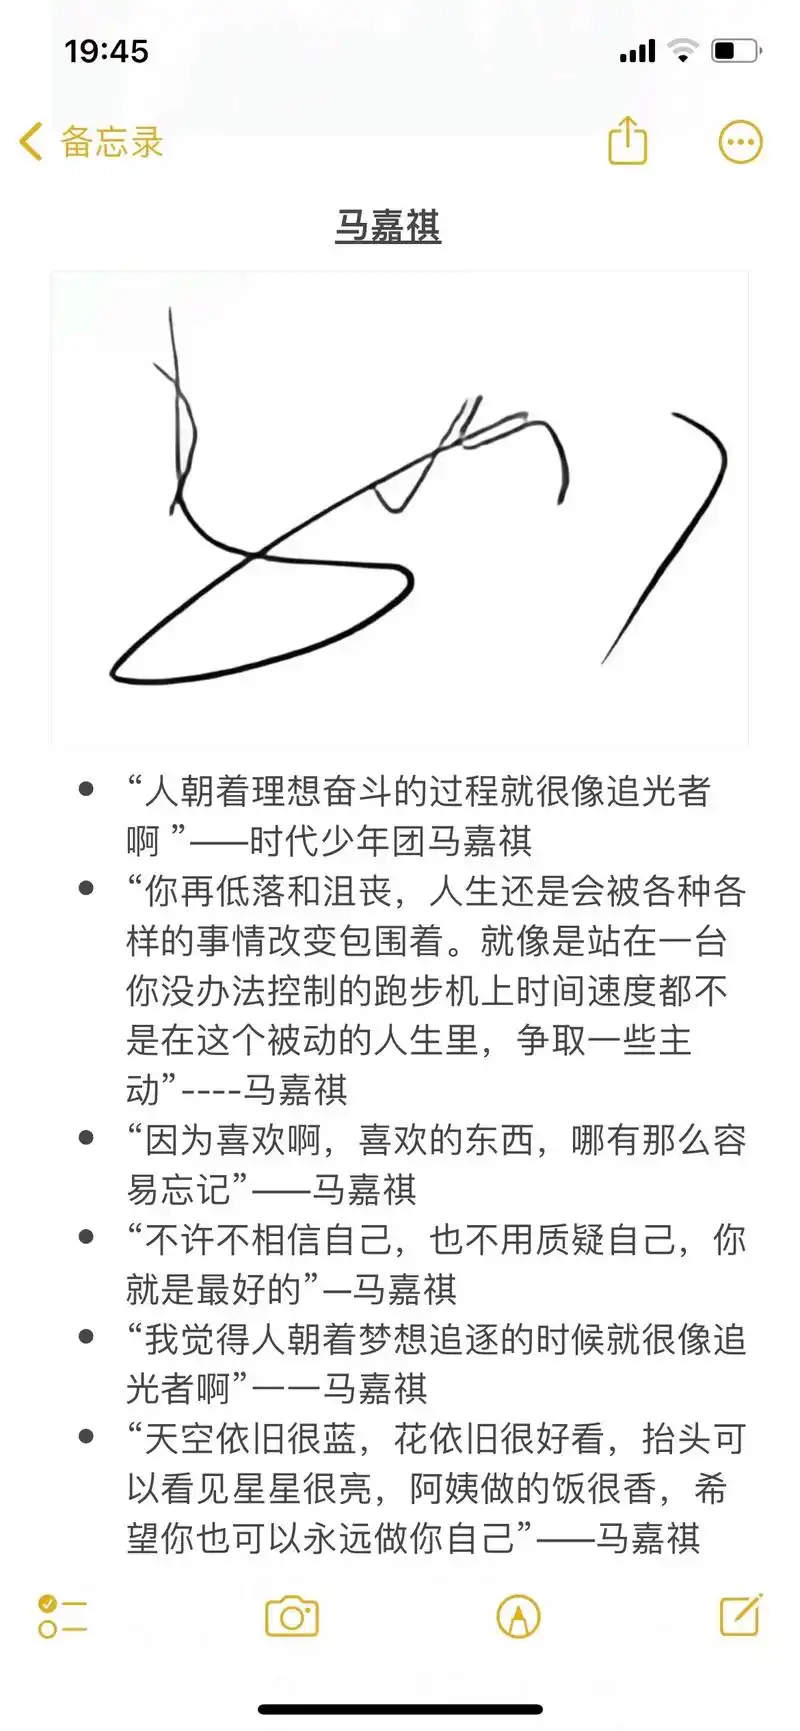 19:45
备忘录
马嘉祺
“人朝着理想奋斗的过程就很像追光者
啊 ”——时代少年团马嘉祺
“你再低落和沮丧，人生还是会被各种各
样的事情改变包围着。就像是站在一台
你没办法控制的跑步机上时间速度都不
是在这个被动的人生里，争取一些主
动”----马嘉祺
“因为喜欢啊，喜欢的东西，哪有那么容
易忘记”——马嘉祺
“不许不相信自己，也不用质疑自己，你
就是最好的”—马嘉祺
“我觉得人朝着梦想追逐的时候就很像追
光者啊”一一马嘉祺
“天空依旧很蓝，花依旧很好看，抬头可
以看见星星很亮，阿姨做的饭很香，希
望你也可以永远做你自己”——马嘉祺